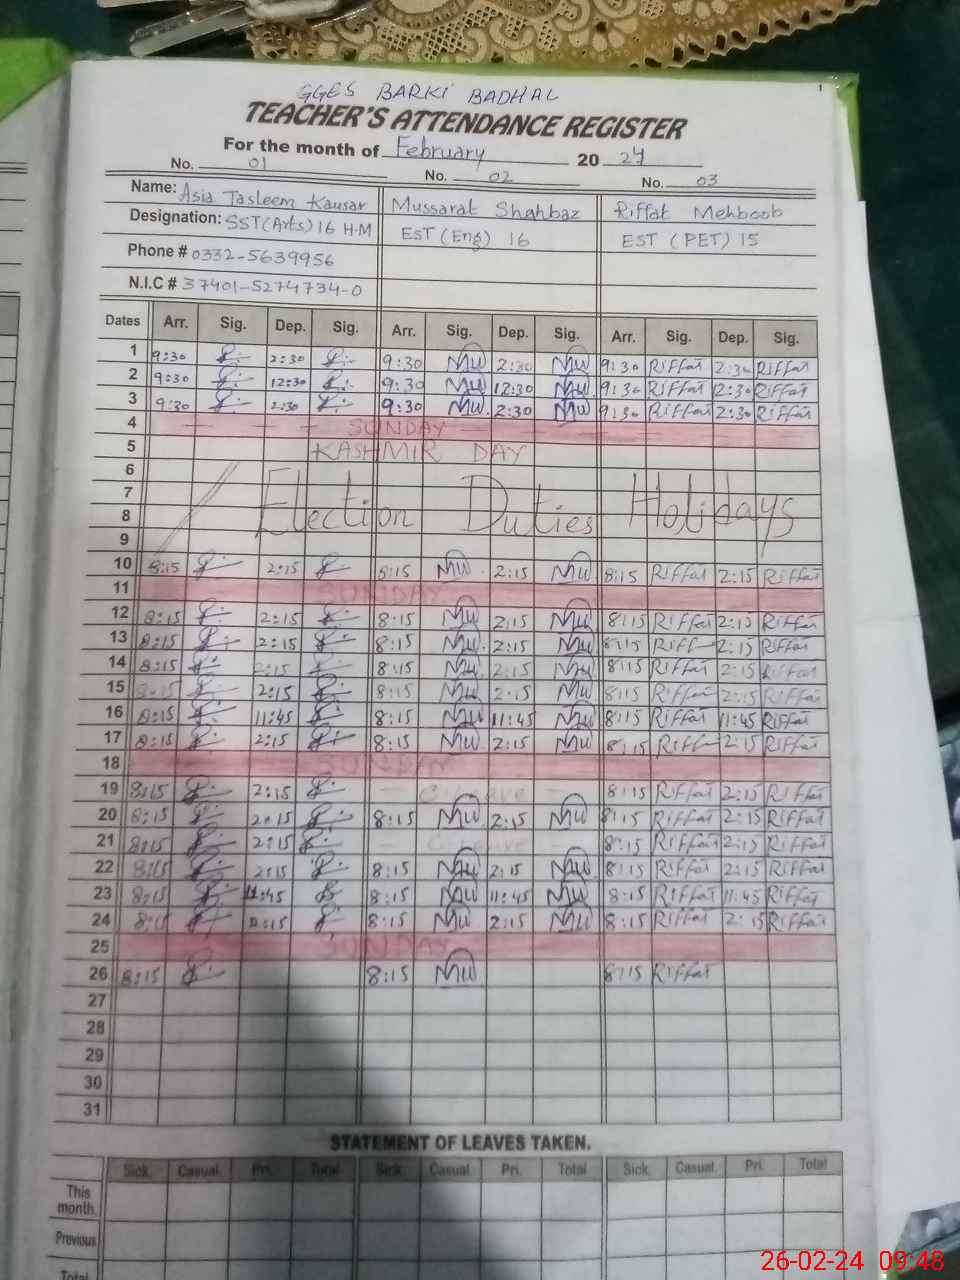 GGES BARKI BADHAL
TEACHER'S ATTENDANCE REGISTER
For the month of February 20 24
No. 01 No. 02 No. 03
Name: Asia Tasleem Kausar Mussarat Shahbaz Riffat Mehboob
Designation: SST (Arts) 16 H.M EST (Eng) 16 EST (PET) 15
Phone # 0332-5639956
N.I.C # 37401-5274734-0
Dates Arr. Sig. Dep. Sig. Arr. Sig. Dep. Sig. Arr. Sig. Dep. Sig.
1 9:30 2:30 9:30 2:30 9:30 Riffat 2:30 Riffat
2 9:30 12:30 9:30 12:30 9:30 Riffat 12:30 Riffat
3 9:30 2:30 9:30 2:30 9:30 Riffat 2:30 Riffat
4 SUNDAY
5 KASHMIR DAY
6
7
8 Election Duties Holidays
9
10 8:15 2:15 8:15 2:15 8:15 Riffat 2:15 Riffat
11 SUNDAY
12 8:15 2:15 8:15 2:15 8:15 Riffat 2:15 Riffat
13 8:15 2:15 8:15 2:15 8:15 Riff 2:15 Riffat
14 8:15 2:15 8:15 2:15 8:15 Riffat 2:15 Riffat
15 8:15 2:15 8:15 2:15 8:15 Riffat 2:15 Riffat
16 8:15 11:45 8:15 11:45 8:15 Riffat 11:45 Riffat
17 8:15 2:15 8:15 2:15 8:15 Riff 2:15 Riffat
18 SUNDAY
19 8:15 2:15 - C. Leave - 8:15 Riffat 2:15 Riffat
20 8:15 2:15 8:15 2:15 8:15 Riffat 2:15 Riffat
21 8:15 2:15 - C. Leave - 8:15 Riffat 2:15 Riffat
22 8:15 2:15 8:15 2:15 8:15 Riffat 2:15 Riffat
23 8:15 11:45 8:15 11:45 8:15 Riffat 11:45 Riffat
24 8:15 2:15 8:15 2:15 8:15 Riffat 2:15 Riffat
25 SUNDAY
26 8:15 8:15 8:15 Riffat
27
28
29
30
31
STATEMENT OF LEAVES TAKEN.
Sick. Casual. Pri. Total Sick. Casual. Pri. Total Sick. Casual. Pri. Total
This month.
Previous
Total
26-02-24 09:48